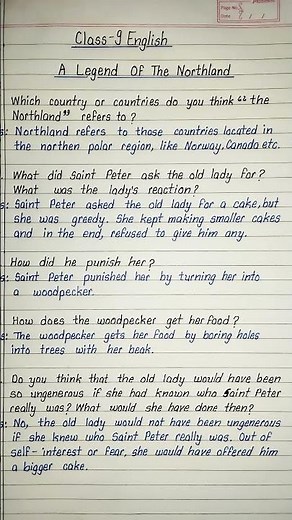 Page No.
Date / /
Class-9 English
A Legend Of The Northland
Which country or countries do you think "the
Northland" refers to?
s: Northland refers to those countries located in
the northen polar region, like Norway, Canada etc.
What did Saint Peter ask the old lady for?
What was the lady's reaction?
s: Saint Peter asked the old lady for a cake, but
she was greedy. She kept making smaller cakes
and in the end, refused to give him any.
How did he punish her?
s: Saint Peter punished her by turning her into
a woodpecker.
How does the woodpecker get her food?
s: The woodpecker gets her food by boring holes
into trees with her beak.
Do you think that the old lady would have been
so ungenerous if she had known who Saint Peter
really was? What would she have done then?
s: No, the old lady would not have been ungenerous
if she knew who Saint Peter really was. Out of
self-interest or fear, she would have offered him
a bigger cake.